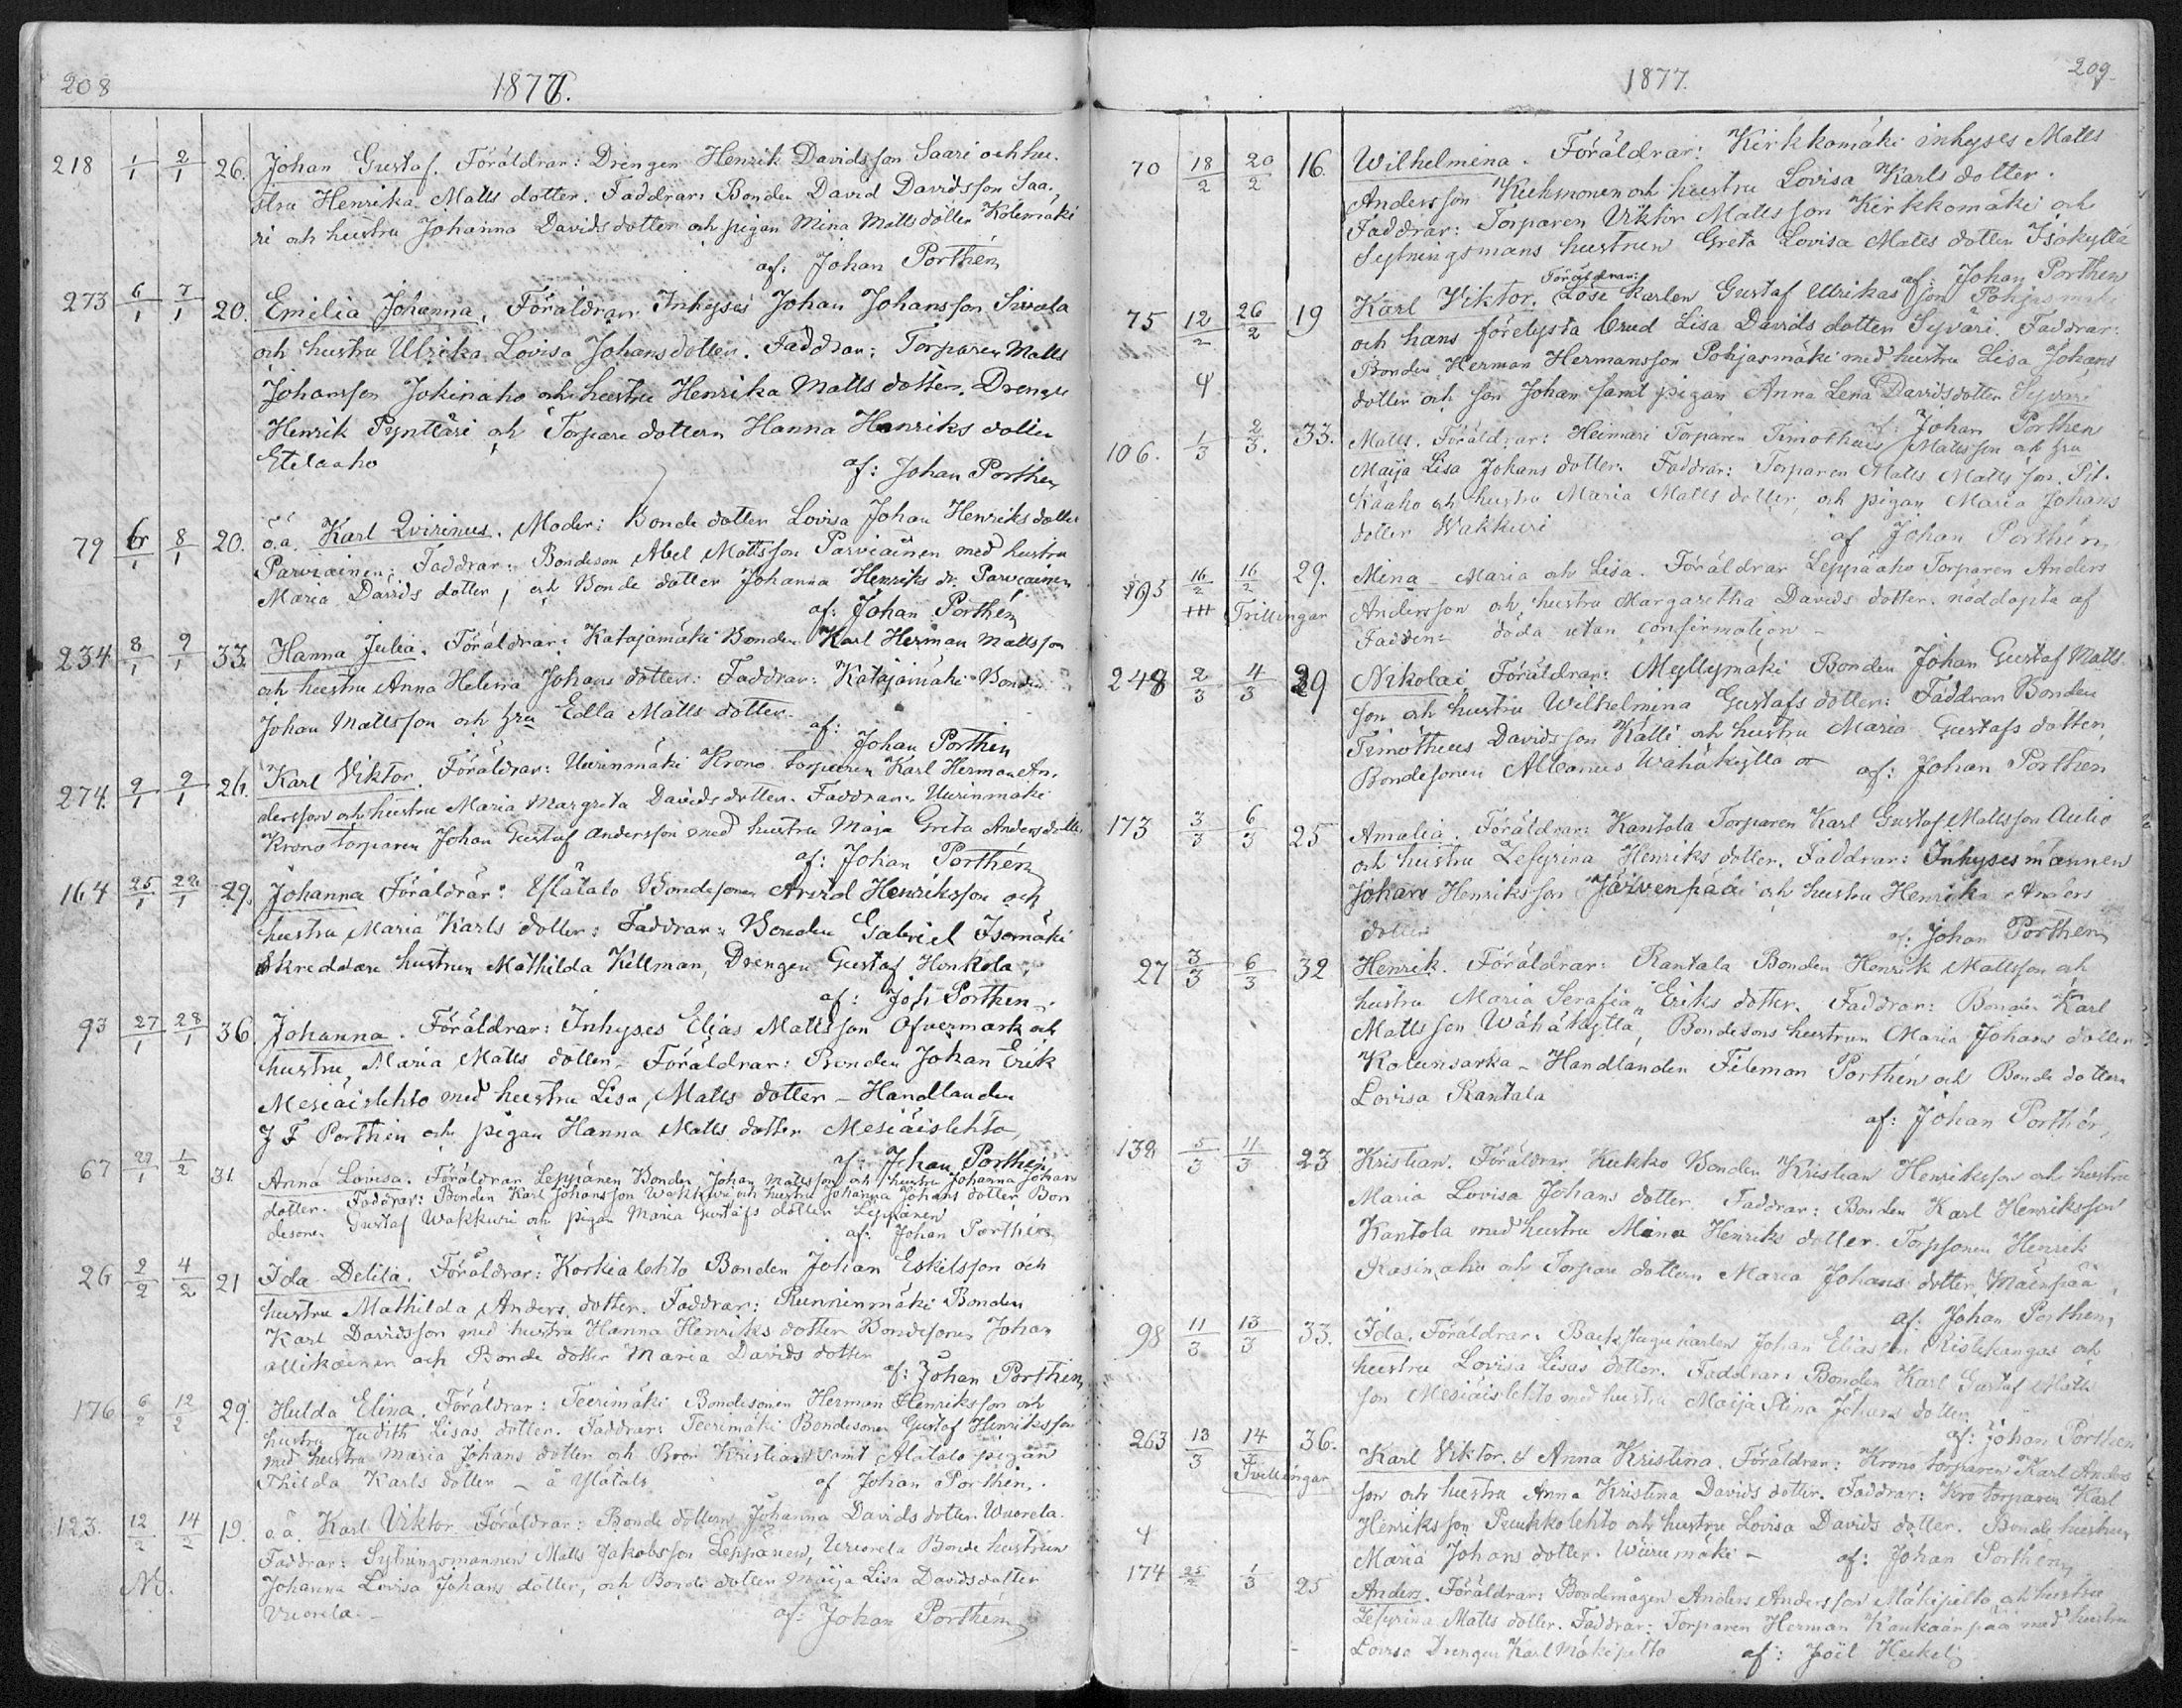 208
1877.
218 1/1 2/1 26. Johan Gustaf. Föräldrar: Drengen Henrik Davidsson Saari och hu-
stru Henrika Matts dotter. Faddrar: Bonden David Davidsson Saa-
ri och hustru Johanna Davids dotter och pigan Mina Matts dotter Kolemäki
af: Johan Porthén
273 6/1 7/1 20. Emilia Johanna. Föräldrar: Inhyses Johan Johansson
och hustru Ulrika Lovisa Johansdotter. Faddrar: Torparen Matts
Johansson Jokinaho och hustru Henrika Matts dotter. Drengen
Henrik Pynttäri och Torpare dottern Hanna Henriks dotter
Etelaaho
af: Johan Porthén
79 6/1 8/1 20. o.ä. Karl Qvirinus. Moder: Bonde dotter Lovisa Johan Henriks dotter
Parviainen; Faddrar: Bondeson Abel Mattsson Parviainen med hustru
Maria Davids dotter, och Bonde dotter Johanna Henriks dr. Parviainen
af: Johan Porthén
234 8/1 9/1 33. Hanna Julia. Föräldrar: Katajamäki Bonden Karl Herman Mattsson
och hustru Anna Helena Johans dotter: Faddrar: Katajamäki Bonden
Johan Mattsson och hru Edla Matts dotter.
af: Johan Porthén
274. 9/1 9/1 26. Karl Viktor. Föräldrar: Uurinmäki Krono torparen Karl Herman An-
dersson och hustru Maria Margreta Davids dotter. Faddrar: Uurinmäki
Krono torparen Johan Gustaf Andersson med hustru Maja Greta Anders dotter
af: Johan Porthén
164 25/1 29. Johanna Föräldrar: Ylätalo Bondesonen Arvid Henriksson och
hustru Maria Karls dotter: Faddrar: Bonden Gabriel Isomäki
Skreddare hustrun Mathilda Killman, Drengen Gustaf Honkola,
af: Joh Porthén.
93 27/1 28/1 36. Johanna. Föräldrar: Inhyses Elias Mattsson Ofvermark och
hustru Maria Matts dotter - Föräldrar: Bonden Johan Erik
Mesiäislehto med hustru Lisa Matts dotter - Handlanden
J F Porthén och pigan Hanna Matts dotter Mesiäislehto,
af: Johan Porthén
67 1/2 31. Anna Lovisa. Föräldrar Leppänen Bonden Johan Mattsson och hustru Johanna Johans
dotter. Faddrar: Bonden Karl Johansson Wakkuri och hustru Johanna Johans dotter Bon
desonen Gustaf Wakkuri och pigan Maria Gustafs dotter Leppänen
af: Johan Porthén
26 2/2 4/2 21 Ida Delila. Föräldrar: Korkialehto Bonden Johan Eskilsson och
hustru Mathilda Anders dotter. Faddrar: Runninmäki Bonden
Karl Davidsson med hustru Hanna Henriks dotter Bondesonen Johan
och Bonde dotter Maria Davids dotter
af: Johan Porthén
176 6/2 12/2 29. Hulda Elina. Föräldrar: Teerimäki Bondesonen Herman Henriksson och
hustru Judith Lisas dotter. Faddrar: Teerimäki Bondesonen Gustaf Henriksson
med hustru Maria Johans dotter och Bror Kristian samt Alatalo pigan
Thilda Karls dotter - å Ylätalo
af Johan Porthén.
123. 12/2 14/2 19. o.ä. Karl Viktor Föräldrar: Bonde dottern Johanna Davids dotter Wuorela.
Faddrar: Sytningsmannen Matts Jakobsson Leppänen, Wuorela Bonde hustrun
Johanna Lovisa Johans dotter, och Bonde dotter Maija Lisa Davidsdotter
Vuorela.-
af: Johan Porthén
1877.
209.
70 18/2 20/2 16. Wilhelmina. Föräldrar: Kirkkomäki inhyses Matts
Andersson Kuhmonen och hustru Lovisa Karls dotter.
Faddrar: Torparen Viktor Mattsson Kirkkomäki och
Sytningsmans hustrun Greta Lovisa Matts dotter Isokyltä
af Johan Porthén
75 12/2 26/2 19 Karl Viktor. Föräldrar: Löse karlen Gustaf Ulrikasson Pohjasmäki
och hans förelysta brud Lisa Davids dotter Syväri. Faddrar:
Bonden Herman Hermansson Pohjasmäki med hustru Lisa Johans
dotter och son Johan samt pigan Anna Lena Davidsdotter Syväri
af: Johan Porthén
106. 1/3 2/3. 33. Matts. Föräldrar: Heimari Torparen Timotheus Mattsson och hru
Maija Lisa Johans dotter. Faddrar: Torparen Matts Mattsson Pit-
kääho och hustru Maria Matts dotter, och pigan Maria Johans
dotter Wakkuri
af Johan Porthén,
195 16/2 16/2 29. Mina - Maria och Lisa. Föräldrar Leppäaho Torparen Anders
Trillingar Andersson och hustru Margaretha Davids dotter. nöddöpta af
Fadren döda utan confirmation -
248 2/3 4/3 29 Nikolai Föräldrar: Myllymäki Bonden Johan Gustaf Matts
son och hustru Wilhelmina Gustafs dotter: Faddrar Bonden
Timotheus Davidsson Källi och hustru Maria Gustafs dotter,
Bondesonen Albanus Wähäkyltä
af: Johan Porthén
173 3/3 6/3 25 Amalia. Föräldrar: Kantola Torparen Karl Gustaf Mattsson Aulio
och hustru Lefyrina Henriks dotter. Faddrar: Inhysesmannen
Johan Henriksson Järvenpää och hustru Henrika Anders
dotter
af: Johan Porthén
27 3/3 6/3 32 Henrik. Föräldrar: Rantala Bonden Henrik Mattsson och
hustru Maria Serafia Eriks dotter. Faddrar: Bonden Karl
Mattsson Wähäkyltä, Bondesons hustrun Maria Johans dotter
Kolunsarka - Handlanden Filemon Porthén och Bonde dottern
Lovisa Rantala
af: Johan Porthén,
138 5/3 11/3 23 Kristian. Föräldrar Kukko Bonden Kristian Henriksson och hustru
Maria Lovisa Johans dotter. Faddrar: Bonden Karl Henriksson
Kantola med hustru Mina Henriks dotter. Torpsonen Henrik
Rasinaho och Torpare dottern Maria Johans dotter Mäenpää,
af: Johan Porthén,
98 11/3 13/3 33. Ida. Föräldrar: Backstugu karlen Johan Eliasson Ristikangas och
hustru Lovisa Lisas dotter. Faddrar: Bonden Karl Gustaf Matts
son Mesiäislehto med hustru Maija Stina Johans dotter.
af: Johan Porthén
263 13/3 14/3 36. Karl Viktor. & Anna Kristina. Föräldrar: Krono torparen Karl Anders
Tvillingar son och hustru Anna Kristina Davids dotter. Faddrar: Kro torparen Karl
Henriksson Peukkolehto och hustru Lovisa Davids dotter. Bonde hustrun
Maria Johans dotter. Wuurimäki -
af: Johan Porthén
174 25/2 1/3 25 Anders. Föräldrar: Bondemågen Anders Andersson Mäkipelto och hustru
Lefyrina Matts dotter. Faddrar: Torparen Herman Kaukaanpää med hustru
Lovisa Drengen Karl Mäkipelto
af: Joël Heikel